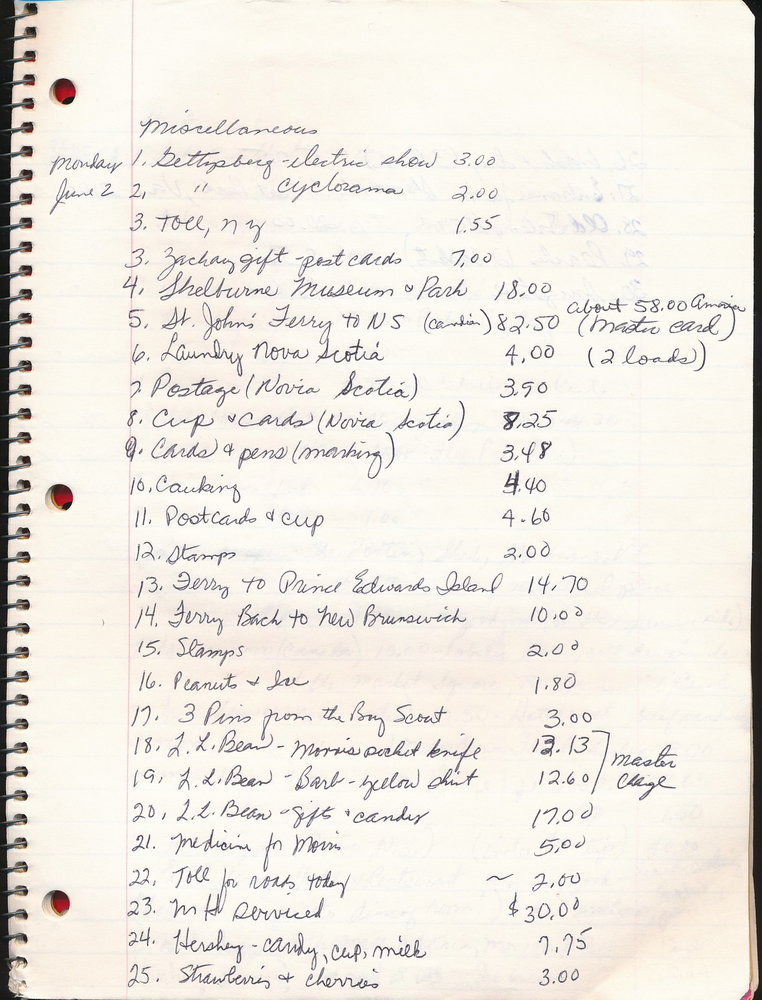 Miscellaneous
Monday 1. Gettysberg - electric show 3.00
June 2 2, " Cyclorama 2.00
3. Toll, NY 1.55
3. Zachary gift - post cards 7.00
4. Shelburne Museum & Park 18.00
5. St. John's Ferry to NS (candian) 82.50 about 58.00 America (Master card)
6. Laundry Nova Scotia 4.00 (2 loads)
7. Postage (Novia Scotia) 3.90
8. Cup & cards (Novia Scotia) 8.25
9. Cards & pens (marking) 3.48
10. Cauking 4.40
11. Postcards & cup 4.60
12. Stamps 2.00
13. Ferry to Prince Edwards Island 14.70
14. Ferry Back to New Brunswick 10.00
15. Stamps 2.00
16. Peanuts & Ice 1.80
17. 3 Pins from the Boy Scout 3.00
18. L.L. Bean - Morris pocket knife 13.13
19. L.L. Bean - Barb - yellow shirt 12.60 Master Charge
20. L.L. Bean - gifts & candy 17.00
21. Medicine for Morris 5.00
22. Toll for roads today ~ 2.00
23. MH serviced $30.00
24. Hershey - candy, cup, milk 7.75
25. Strawberris & cherries 3.00